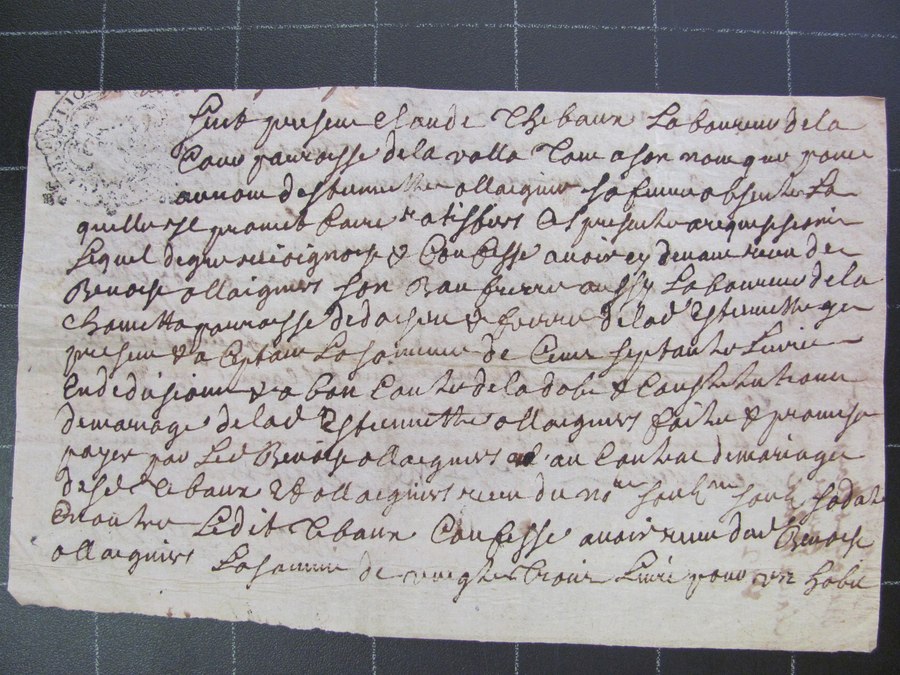 Fust presens Claude Thebaux Laboureur de la
paroisse de la valla Tant a son nom que pour
au nom destiennette ollaignier sa femme absente La
quelle il promet faire ratiffier Ces presentes
Lequel de gre recoignoist & Confesse avoir cy devant receu de
Benoist ollaignier son Beau frere aussy Laboureur de la
paroisse de & frere de lad Estiennette
present & aceptant La somme de Cent septante Livres
En deduction & a bon Conte de la dote & Constitution
de mariage de lad Estiennette ollaignier faite & promise
payer par Led Benoist ollaignier au Contrat de mariage
desd Tebaux & ollaignier receu du no.re soub.ne soub sa date
En outre Ledit Tebaux Confesse avoir receu dud Benoist
ollaignier La somme de vingt trois Livre pour un habit